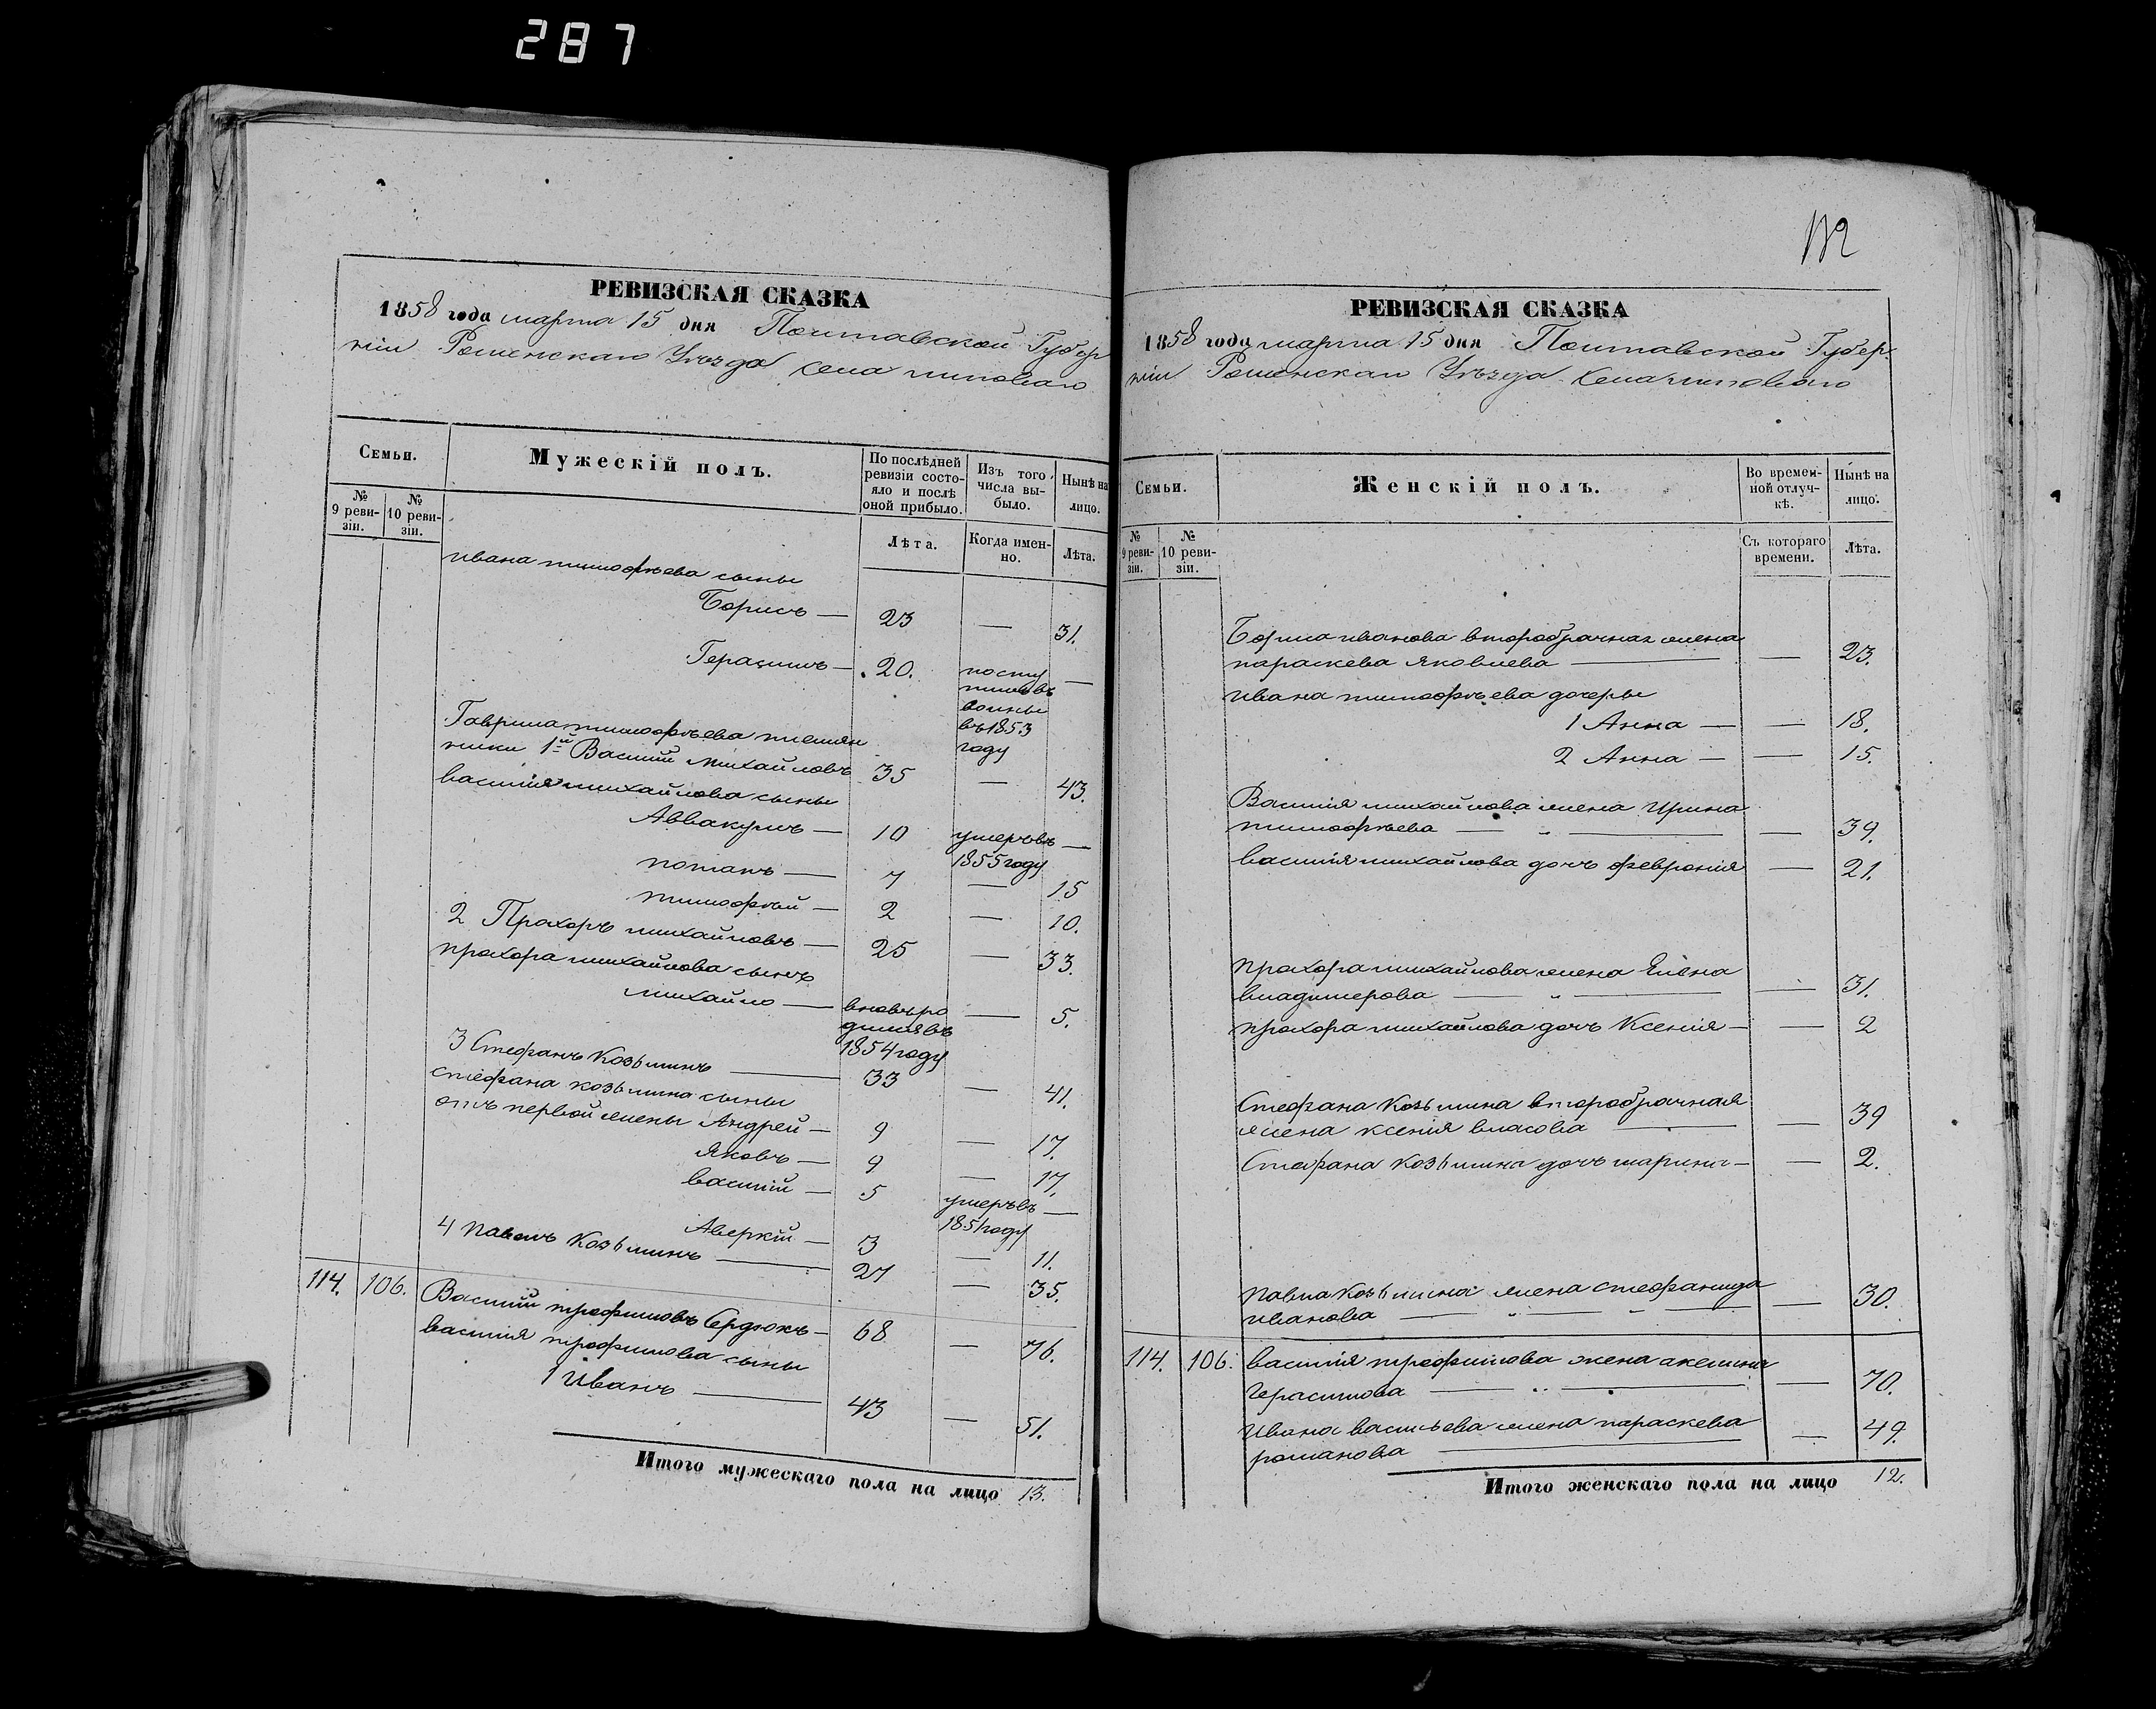 287
РЕВИЗСКАЯ СКАЗКА
1858 года марта 15 дня Полтавской Губер
ніи Роменскаго Уѣзда села липоваго
Семьи.
Мужескій полъ.
По послѣдней ревизіи состояло и послѣ оной прибыло.
Изъ того числа выбыло.
Нынѣ на лицо.
№ 9 ревизіи.
№ 10 ревизіи.
Лѣта.
Когда именно.
Лѣта.
ивана тимофѣева сыны
Борисъ — 23 — 31.
Герасимъ — 20. посту —
пилъ въ
воины
въ 1853
году
Гаврила тимофѣева племян
ники 1й Василій михайловъ 35 — 43.
василія михайлова сыны
Аввакумъ — 10 умеръ въ —
1855 году
потапъ — 7 — 15
тимофѣй — 2 — 10.
2 Прохоръ михайловъ — 25 — 33.
прохора михайлова сынъ
михайло — вновь ро — 5.
дился въ
1854 году
3 Стефанъ Козьминъ — 33 — 41.
стефана козьмина сыны
отъ первой жены Андрей — 9 — 17.
Яковъ — 9 — 17.
василій — 5 умеръ въ —
1851 году
Аверкій — 3 — 11.
4 павелъ Козьминъ — 27 — 35.
114. 106. Василій трофимовъ Сердюкъ — 68 — 76.
василія трофимова сыны
1 Иванъ — 43 — 51.
Итого мужескаго пола на лицо 13.
РЕВИЗСКАЯ СКАЗКА
1858 года марта 15 дня Полтавской Губер
ніи Роменскаго Уѣзда села липоваго
Семьи.
Женскій полъ.
Во временной отлучкѣ.
Нынѣ на лицо.
№ 9 ревизіи.
№ 10 ревизіи.
Съ котораго времени.
Лѣта.
Бориса иванова второбрачная жена
параскева яковлева — — 23.
ивана тимофѣева дочеры
1 Анна — — 18.
2 Анна — — 15.
Василія михайлова жена Ирина
тимофѣева — „ — — 39.
василія михайлова дочь феврония — 21.
прохора михайлова жена Елена
владимерова — „ — — 31.
прохора михайлова дочь Ксенія — — 2
Стефана Козьмина второбрачная
жена ксенія власова — — 39
Стефана Козьмина дочь марина — — 2.
павла Козьмина жена стефанида
иванова — „ — „ — — 30.
114. 106. василія трофимова жена акелина
герасимова — „ — — 70.
Ивана васильева жена параскева
романова — — 49.
Итого женскаго пола на лицо 12.